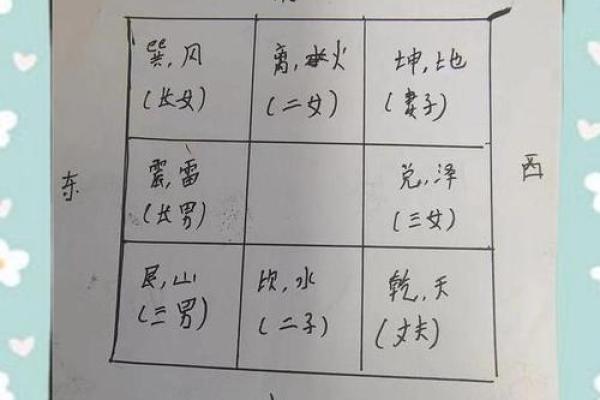 巽,风
(长女)
离,火
(二女)
坤,地
(妻子)
东
震,雷
(长男)
兑,泽
(三女)
西
艮,山
(三男)
坎,水
(二子)
乾,天
(丈夫)